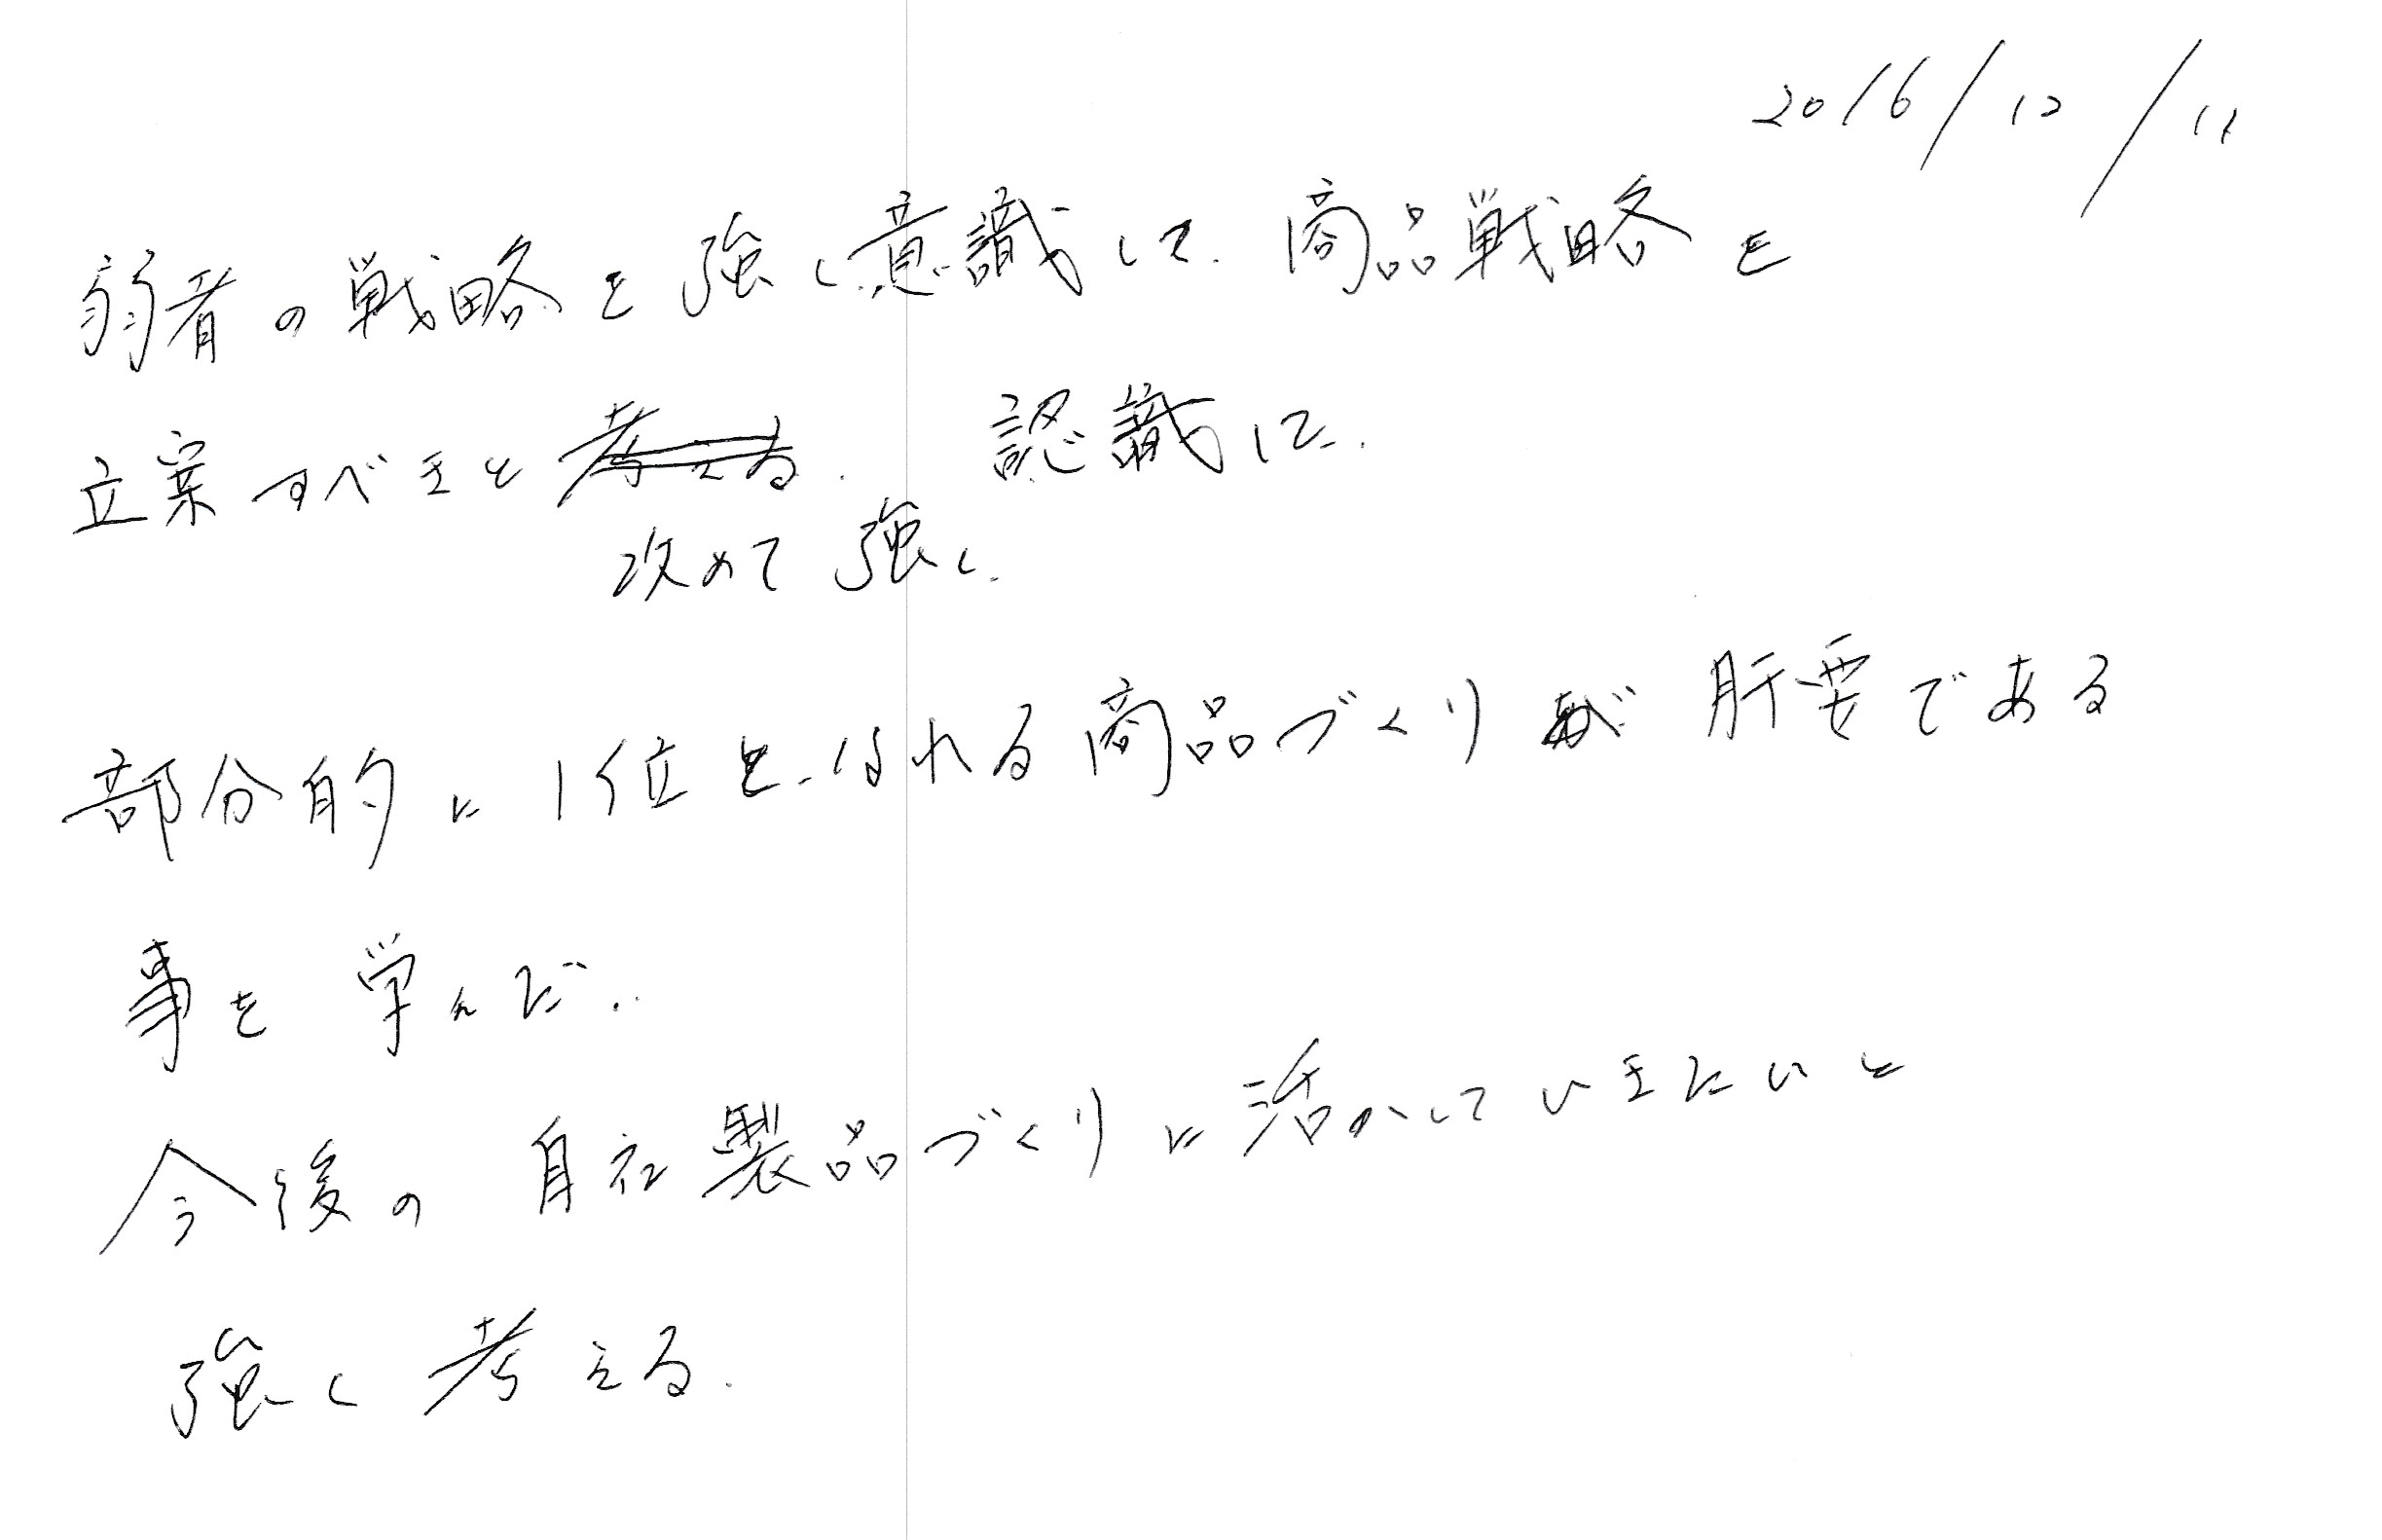 2016/12/11
弱者の戦略を強く意識して、商品戦略を
立案すべきと考える。認識した。
改めて強く
部分的に1位となれる商品づくりが肝要である
事を学んだ。
今後の自社製品づくりに活かしていきたいと
強く考える。